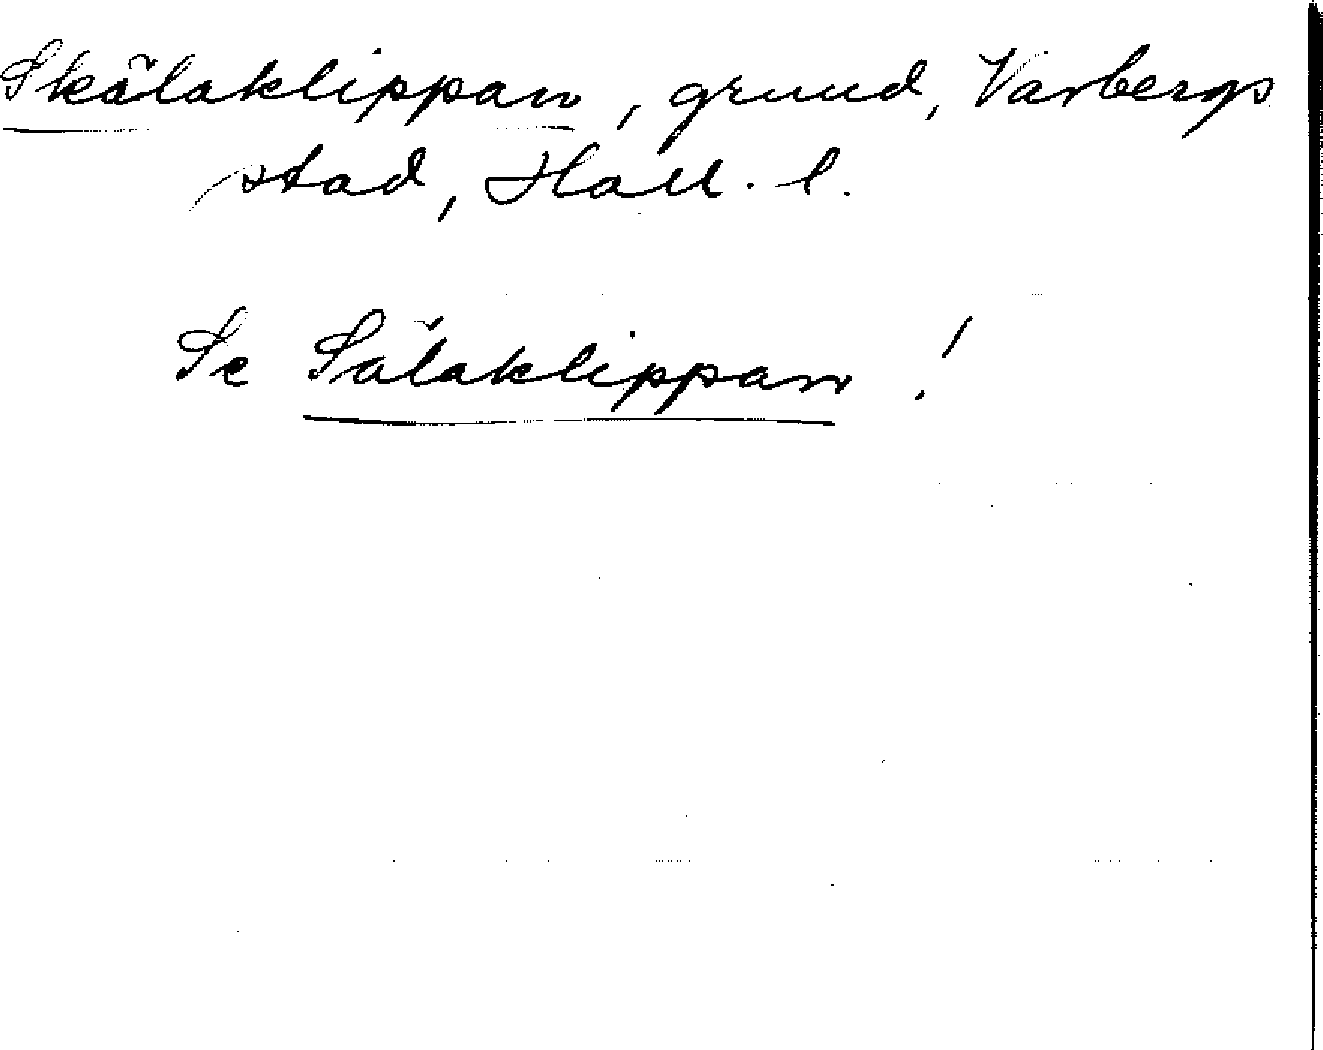 Skälaklippan, grund, Varbergs
stad, Hall. l.
Se Sälaklippan!